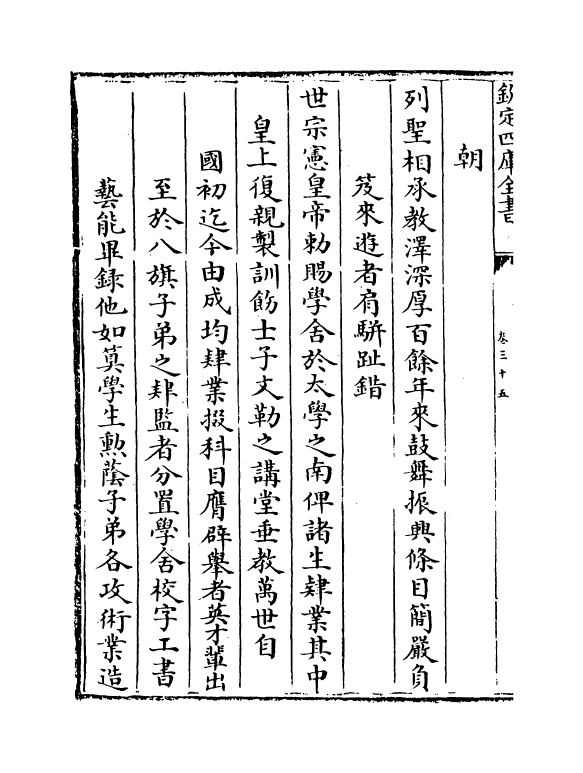 欽定四庫全書
卷三十五
朝
列聖相承教澤深厚百餘年來鼓舞振興條目簡嚴負
笈來遊者肩駢趾錯
世宗憲皇帝勅賜學舍於太學之南俾諸生肄業其中
皇上復親製訓飭士子文勒之講堂垂教萬世自
國初迄今由成均肄業掇科目膺辟舉者英才輩出
至於八旗子弟之肄監者分置學舍校字工書
藝能畢録他如筭學生勲蔭子弟各攻術業造